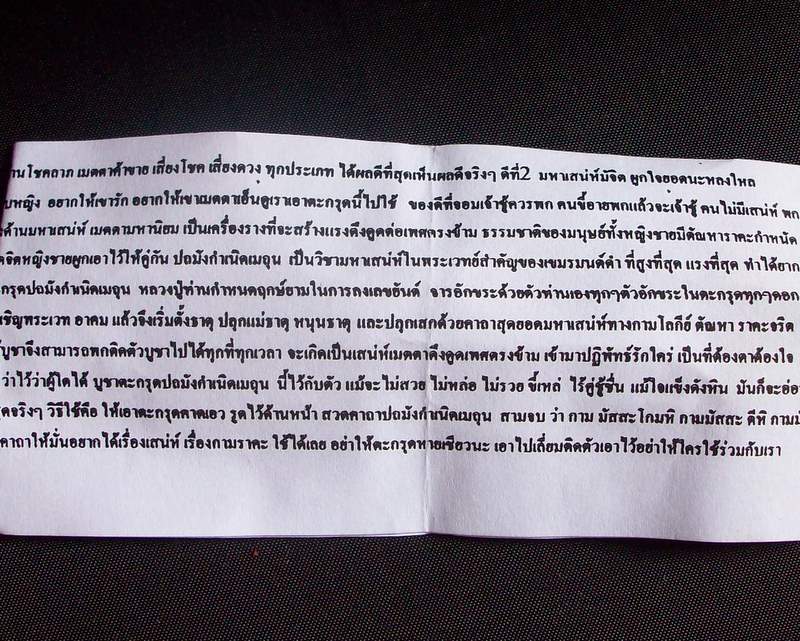 านโชคลาภ เมตตาค้าขาย เสี่ยงโชค เสี่ยงดวง ทุกประเภท ได้ผลดีที่สุดเห็นผลดีจริงๆ ดีที่2 มหาเสน่ห์มัจิต ผูกใจยอดนะหลงใหล
บหญิง อยากให้เขารัก อยากให้เขาเมตตาเอ็นดูเราเอาตะกรุดนี้ไปใช้ ของดีที่จอมเจ้าชู้ควรพก คนขี้อายพกแล้วจะเจ้าชู้ คนไม่มีเสน่ห์ พก
ด้านมหาเสน่ห์ เมตตามหานิยม เป็นเครื่องรางที่จะสร้างแรงดึงดูดต่อเพศตรงข้าม ธรรมชาติของมนุษย์ทั้งหญิงชายมีตัณหาราคะกำหนัด
จิตหญิงชายผูกเอาไว้ให้คู่กัน ปถมังกำเนิดเมถุน เป็นวิชามหาเสน่ห์ในพระเวทย์สำคัญของเขมรมนต์ดำ ที่สูงที่สุด แรงที่สุด ทำได้ยาก
กรุดปถมังกำเนิดเมถุน หลวงปู่ท่านกำหนดฤกษ์ยามในการลงเลขยันต์ จารอักขระด้วยตัวท่านเองทุกๆตัวอักขระในตะกรุดทุกๆดอก
เชิญพระเวท อาคม แล้วจึงเริ่มตั้งธาตุ ปลุกแม่ธาตุ หนุนธาตุ และปลุกเสกด้วยคาถาสุดยอดมหาเสน่ห์ทางกามโลกีย์ ตัณหา ราคะจริต
บูชาจึงสามารถพกติดตัวบูชาไปได้ทุกที่ทุกเวลา จะเกิดเป็นเสน่ห์เมตตาดึงดูดเพศตรงข้าม เข้ามาปฏิพัทธ์รักใคร่ เป็นที่ต้องตาต้องใจ
ว่าไว้ว่าผู้ใดได้ บูชาตะกรุดปถมังกำเนิดเมถุน นี้ไว้กับตัว แม้จะไม่สวย ไม่หล่อ ไม่รวย ขี้เหล่ ไร้คู่ชู้ชื่น แม้ใจแข็งดังหิน มันก็จะอ่อ
ดจริงๆ วิธีใช้คือ ให้เอาตะกรุดคาดเอว รูดไว้ด้านหน้า สวดคาถาปถมังกำเนิดเมถุน สามจบ ว่า กาม มัสสะโกมหิ กามมัสสะ ดีหิ กามมั
คาถาให้มั่นอยากได้เรื่องเสน่ห์ เรื่องกามราคะ ใช้ได้เลย อย่าให้ตะกรุดหายเชียวนะ เอาไปเลี่ยมติดตัวเอาไว้อย่าให้ใครใช้ร่วมกับเรา